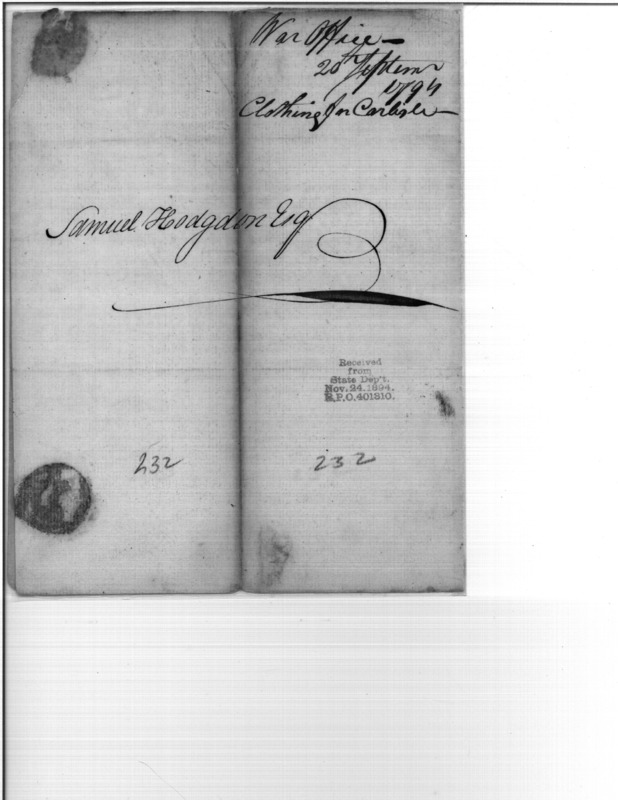 War Office —
20th Septem
1794
Clothing for Carlisle —
Samuel Hodgdon Esq
Received
from
State Dep't.
Nov. 24. 1894.
R.P.O. 401310.
232
232